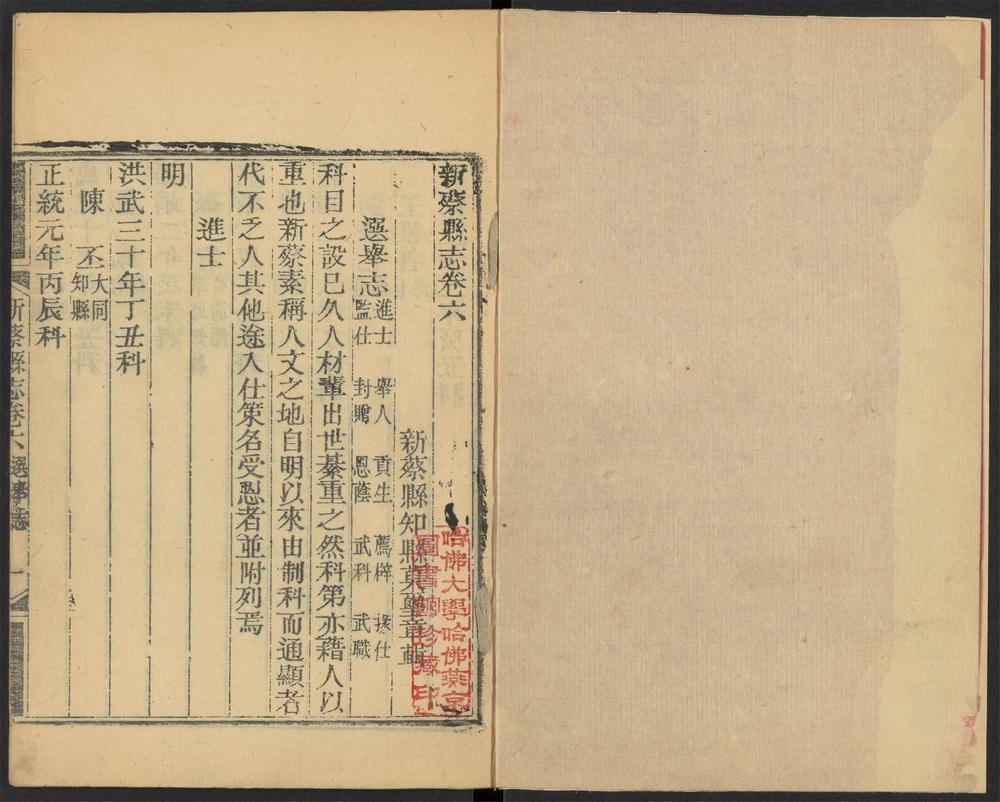 新蔡縣志卷六
新蔡縣知縣莫璽章輯
選舉志 進士 舉人 貢生 薦辟 援仕
監仕 封贈 恩蔭 武科 武職
科目之設已久人材輩出世綦重之然科第亦藉人以
重也新蔡素稱人文之地自明以來由制科而通顯者
代不乏人其他途入仕策名受恩者並附列焉
進士
明
洪武三十年丁丑科
陳丕 大同
知縣
正統元年丙辰科
新蔡縣志卷六 選舉志 一
哈佛大學哈佛燕京
圖書館珍藏印